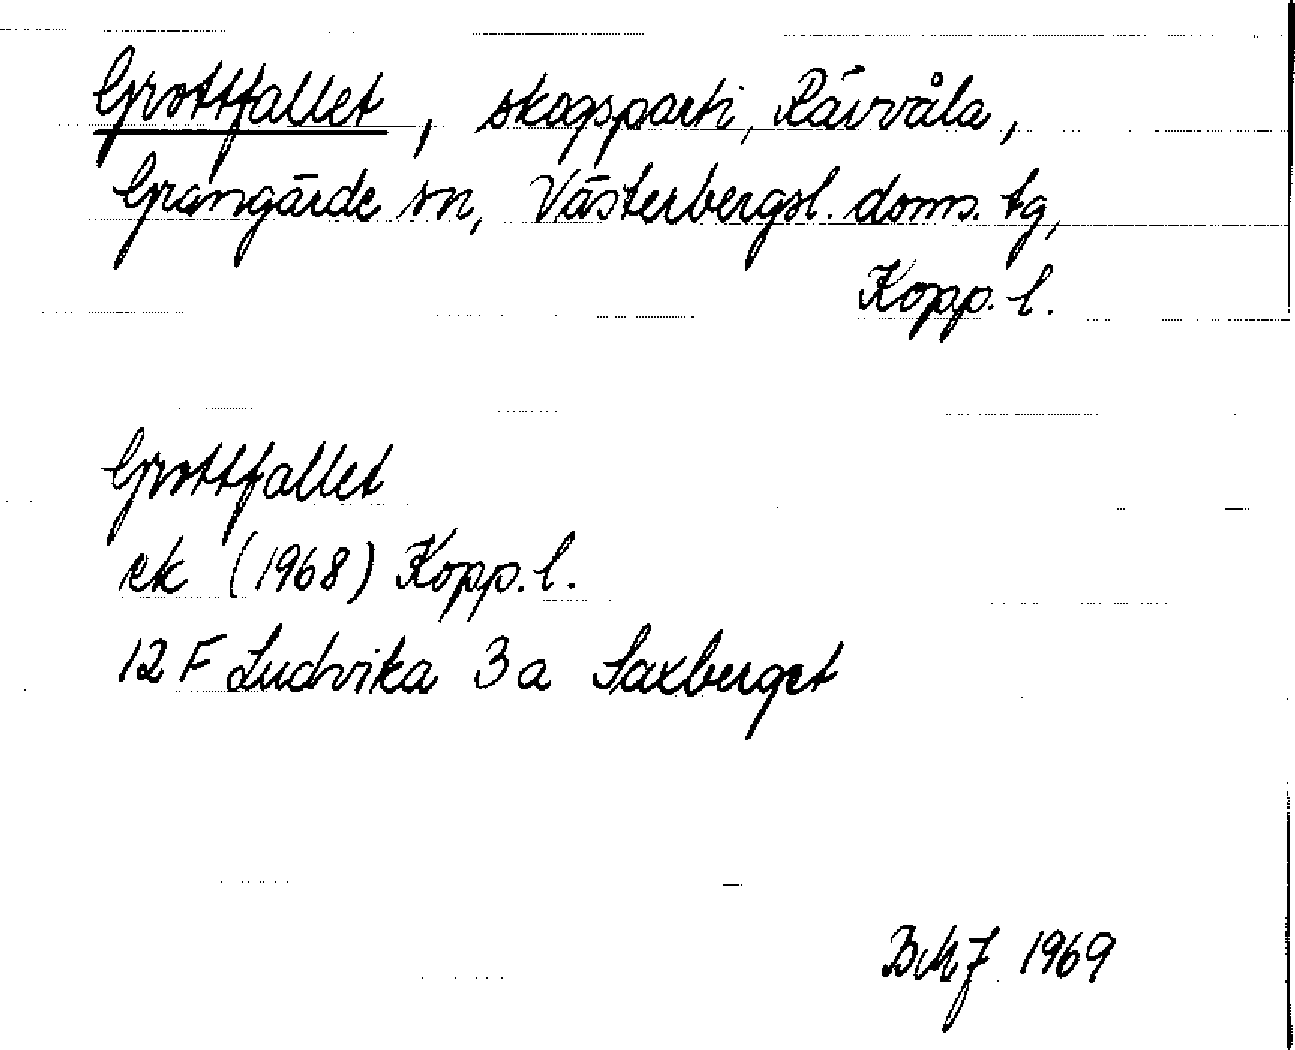 Grottfallet, skogsparti, Rävvåla,
Grangärde sn, Västerbergsl. doms. tg,
Kopp. l.
Grottfallet
ek (1968) Kopp. l.
12 F Ludvika 3 a Saxberget
BMJ 1969